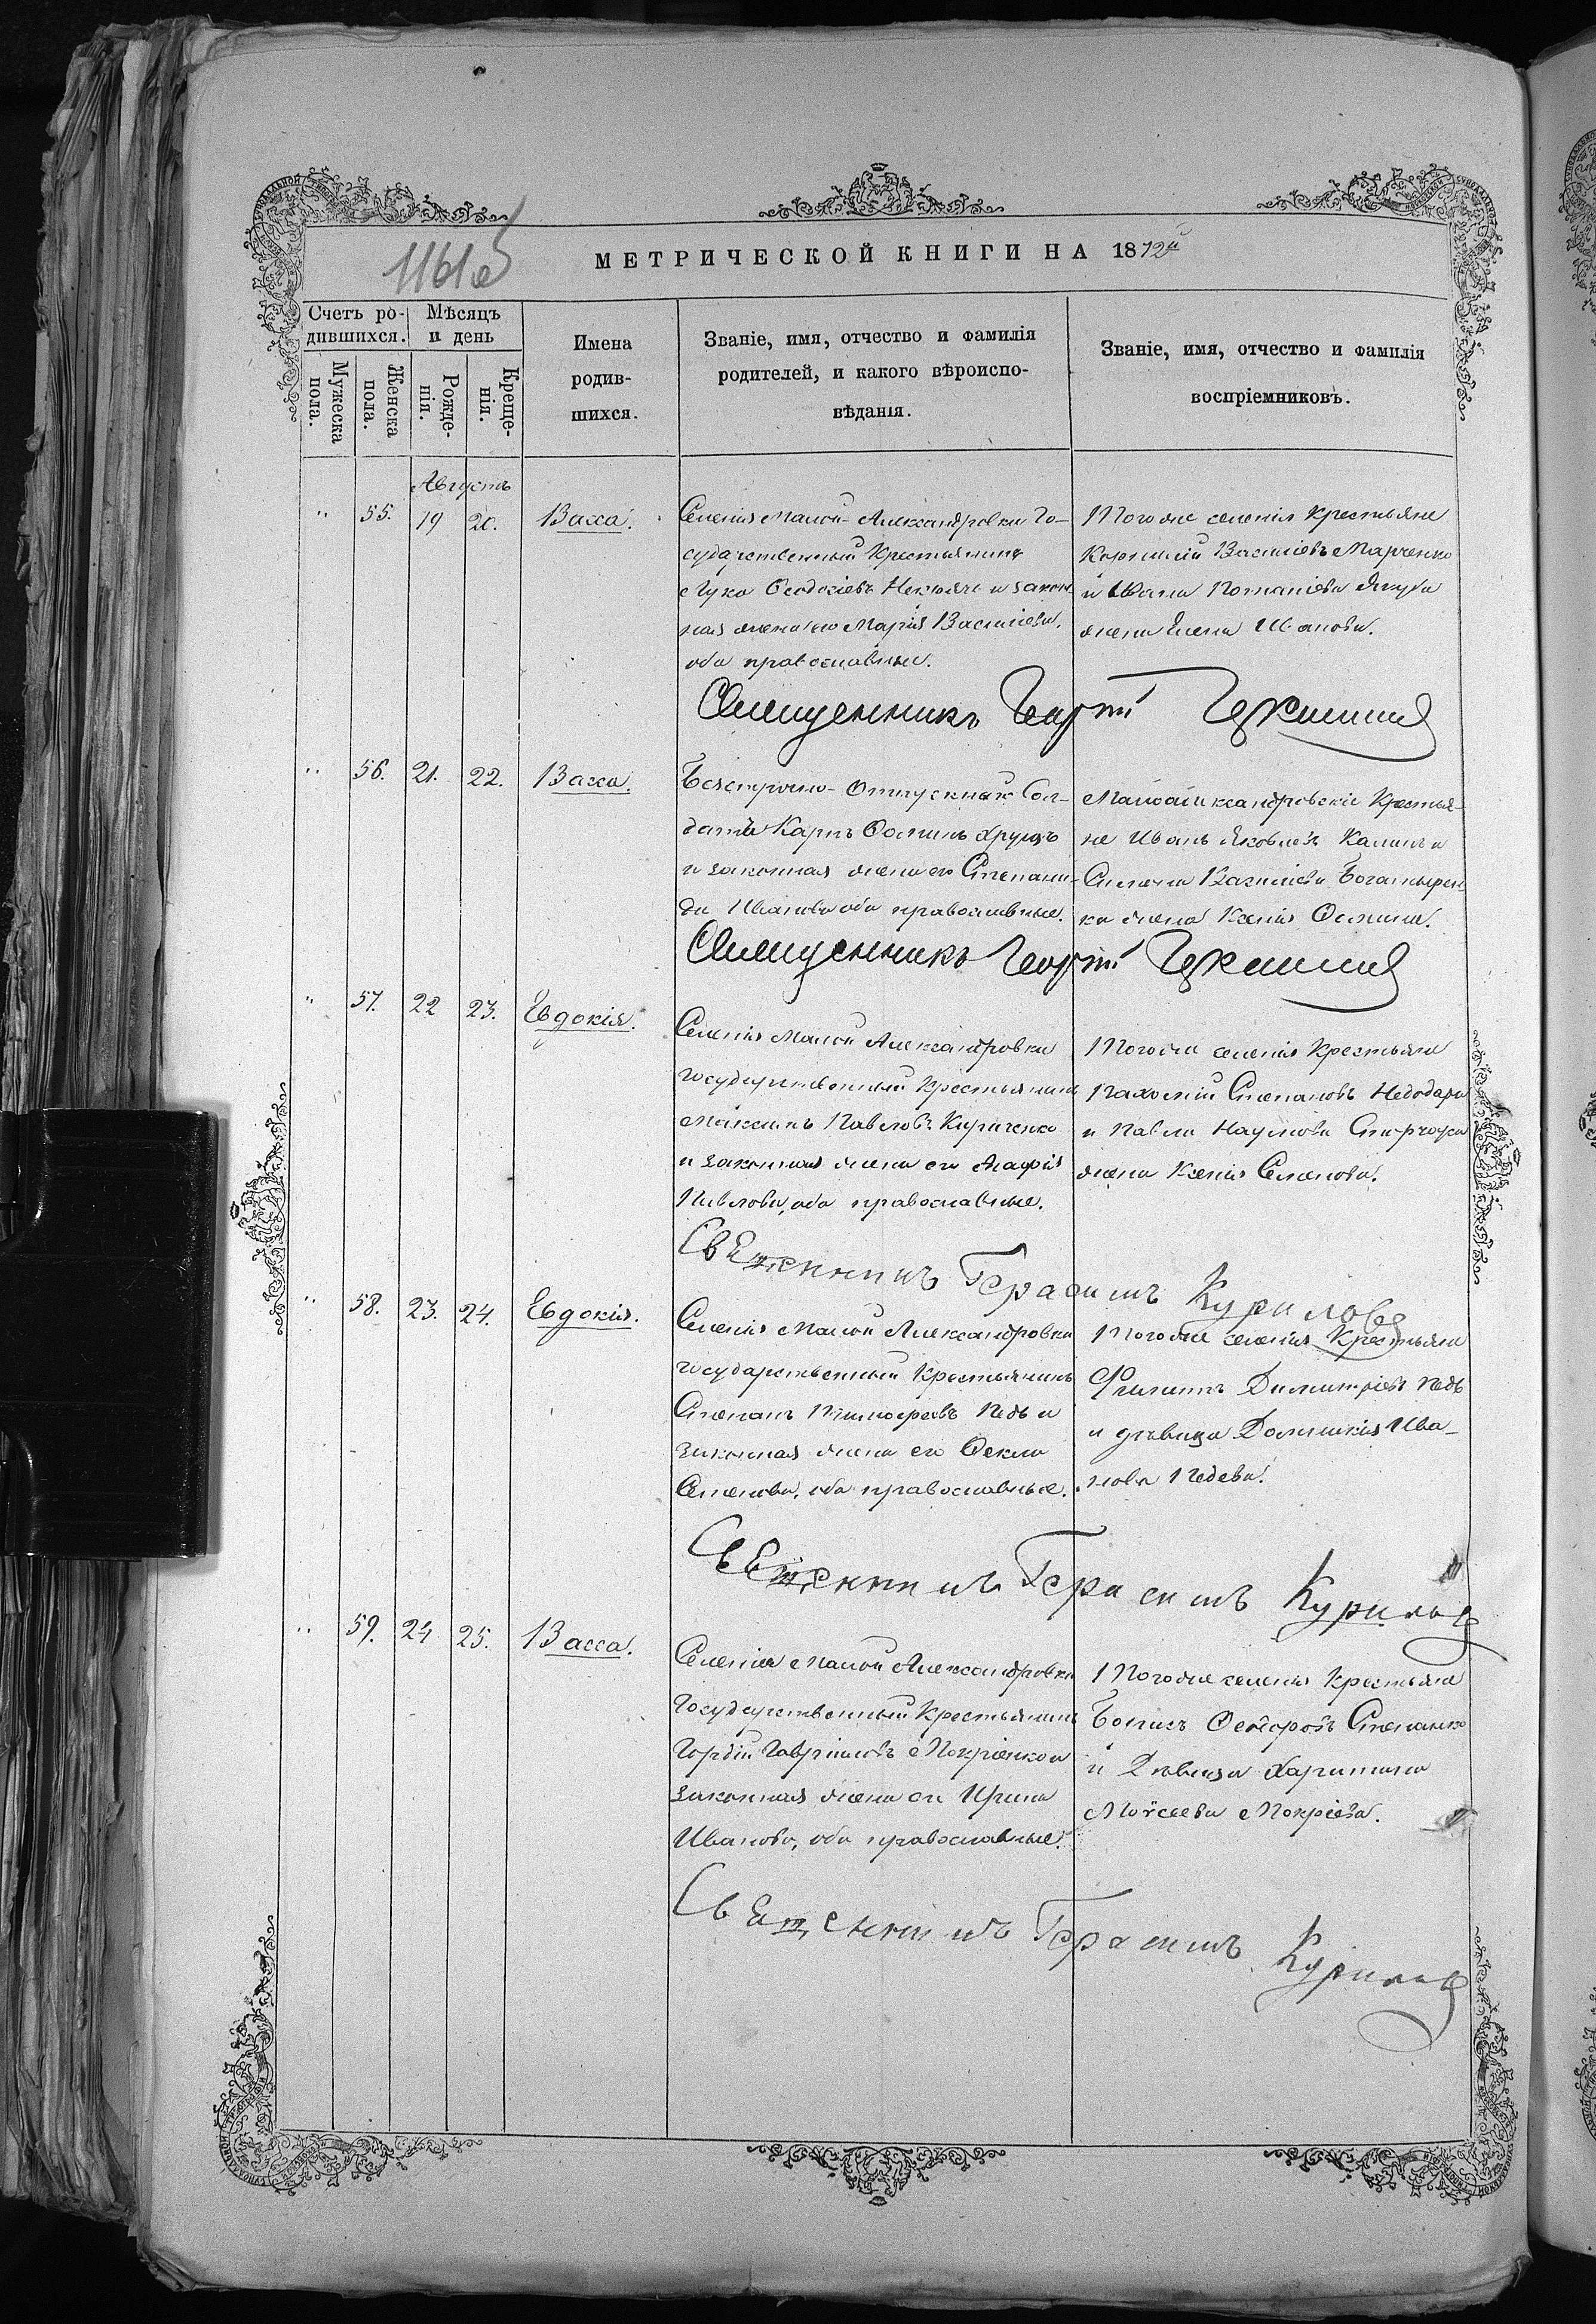 МЕТРИЧЕСКОЙ КНИГИ НА 1872й
Счетъ родившихся.
Мѣсяцъ и день
Мужеска пола.
Женска пола.
Рожденія.
Крещенія.
Имена родившихся.
Званіе, имя, отчество и фамилія
родителей, и какого вѣроиспо-
вѣданія.
Званіе, имя, отчество и фамилія
воспріемниковъ.
Августъ
" 55. 19 20. Васса.
Селенія Малой-Александровки Го-
сударственный Крестьянинъ
Лука Ѳеодосіевъ и закон-
ная жена его Марія Васильева,
оба православные.
Того же селенія крестьяне
Корнилій Васильевъ Марченко
и
жена Елена Иванова.
Священникъ Георгій
" 56. 21. 22. Васса.
Безсрочно-Отпускный Сол-
датъ Карпъ Ѳоминъ Хрущъ
и законная жена его Степани-
да Иванова оба православные.
Малоалександровскіе Крестья-
не Иванъ Яковлевъ Калинъ и
Симеона Васильева Богатырен-
ка жена Ксенія Ѳомина.
Священникъ Георгій
" 57. 22 23. Евдокія.
Селенія Малой Александровки
Государственный Крестьянинъ
Максимъ Павловъ Кириченко
и законная жена его Агафія
Павлова, оба православные.
Того же селенія Крестьяне
Пахомій Степановъ
и Павла Наумова
жена Ксенія Семенова.
Священникъ Герасимъ Куриловъ
" 58. 23. 24. Евдокія.
Селенія Малой Александровки
Государственный Крестьянинъ
Степанъ Тимофеевъ Педь и
законная жена его Ѳекла
Семенова, оба православные.
Того же селенія Крестьяне
Филиппъ Димитріевъ Педь
и дѣвица Домникія Ива-
нова Педева.
Священникъ Герасимъ Куриловъ
" 59. 24 25. Васса.
Селенія Малой Александровки
Государственный Крестьянинъ
Гордій Гавріиловъ Мокріенко и
законная жена его Ирина
Иванова, оба православные.
Того же селенія Крестьяне
Ѳедоровъ Степанко
и Дѣвица Харитина
Моѵсеева Мокріева.
Священникъ Герасимъ Куриловъ